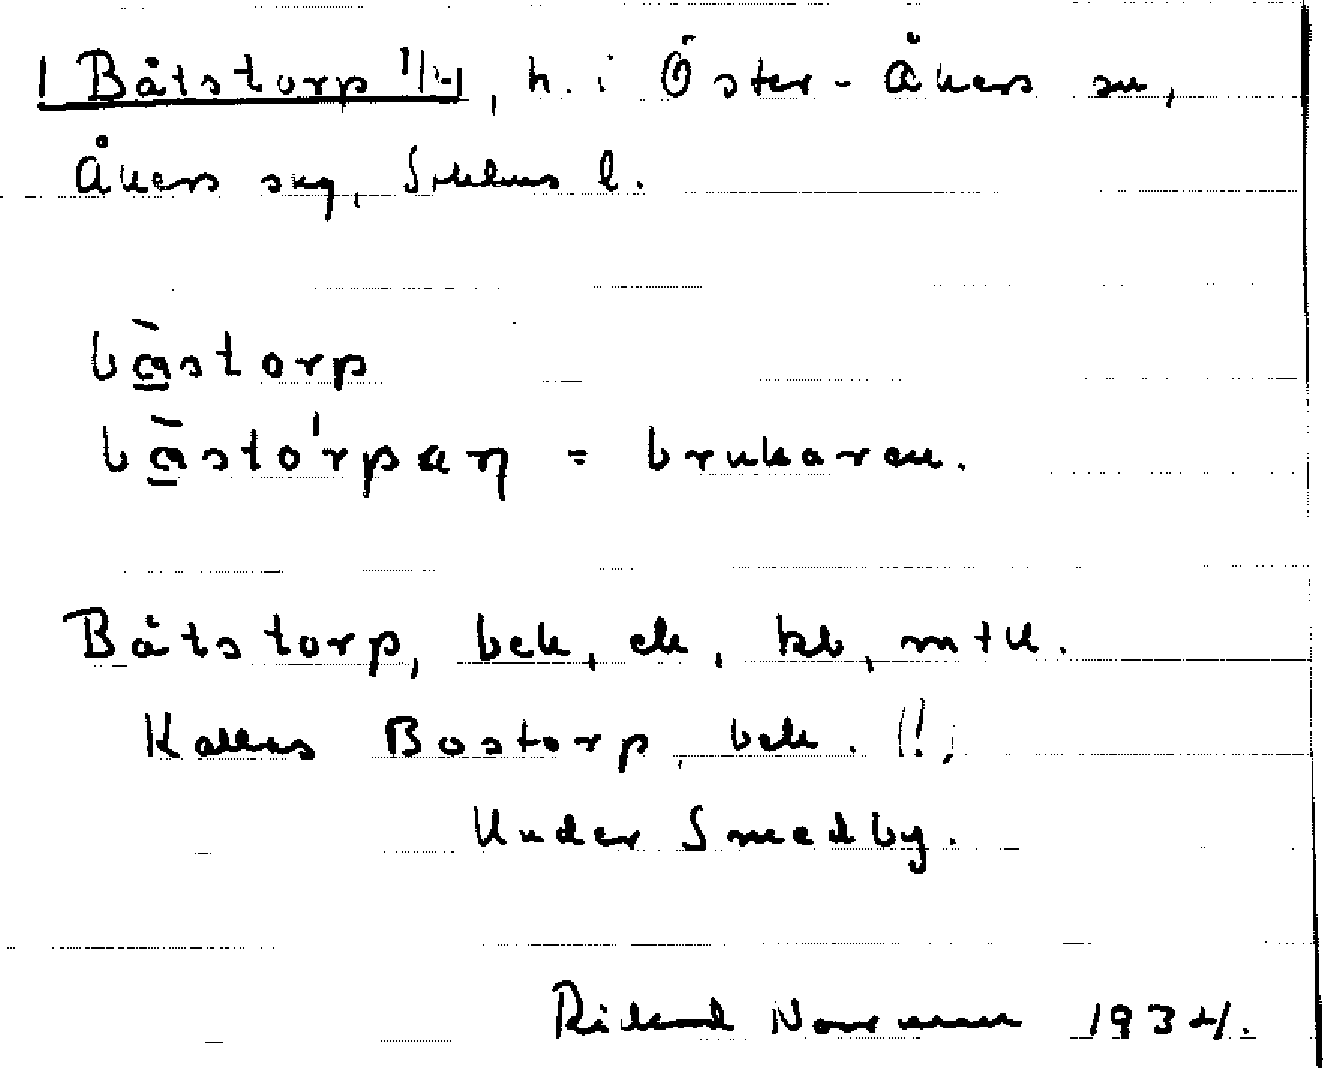 1 Båtstorp 1/4, h. i Öster-Åkers sn,
Åkers skg, Sthlms l.
bàstorp
bàsto'rpaɳ = brukaren.
Båtstorp, bek, ek, kb, mtk.
Kallas Bostorp, bek. !!,
Under Smedby.
Rickard Norrman 1934.